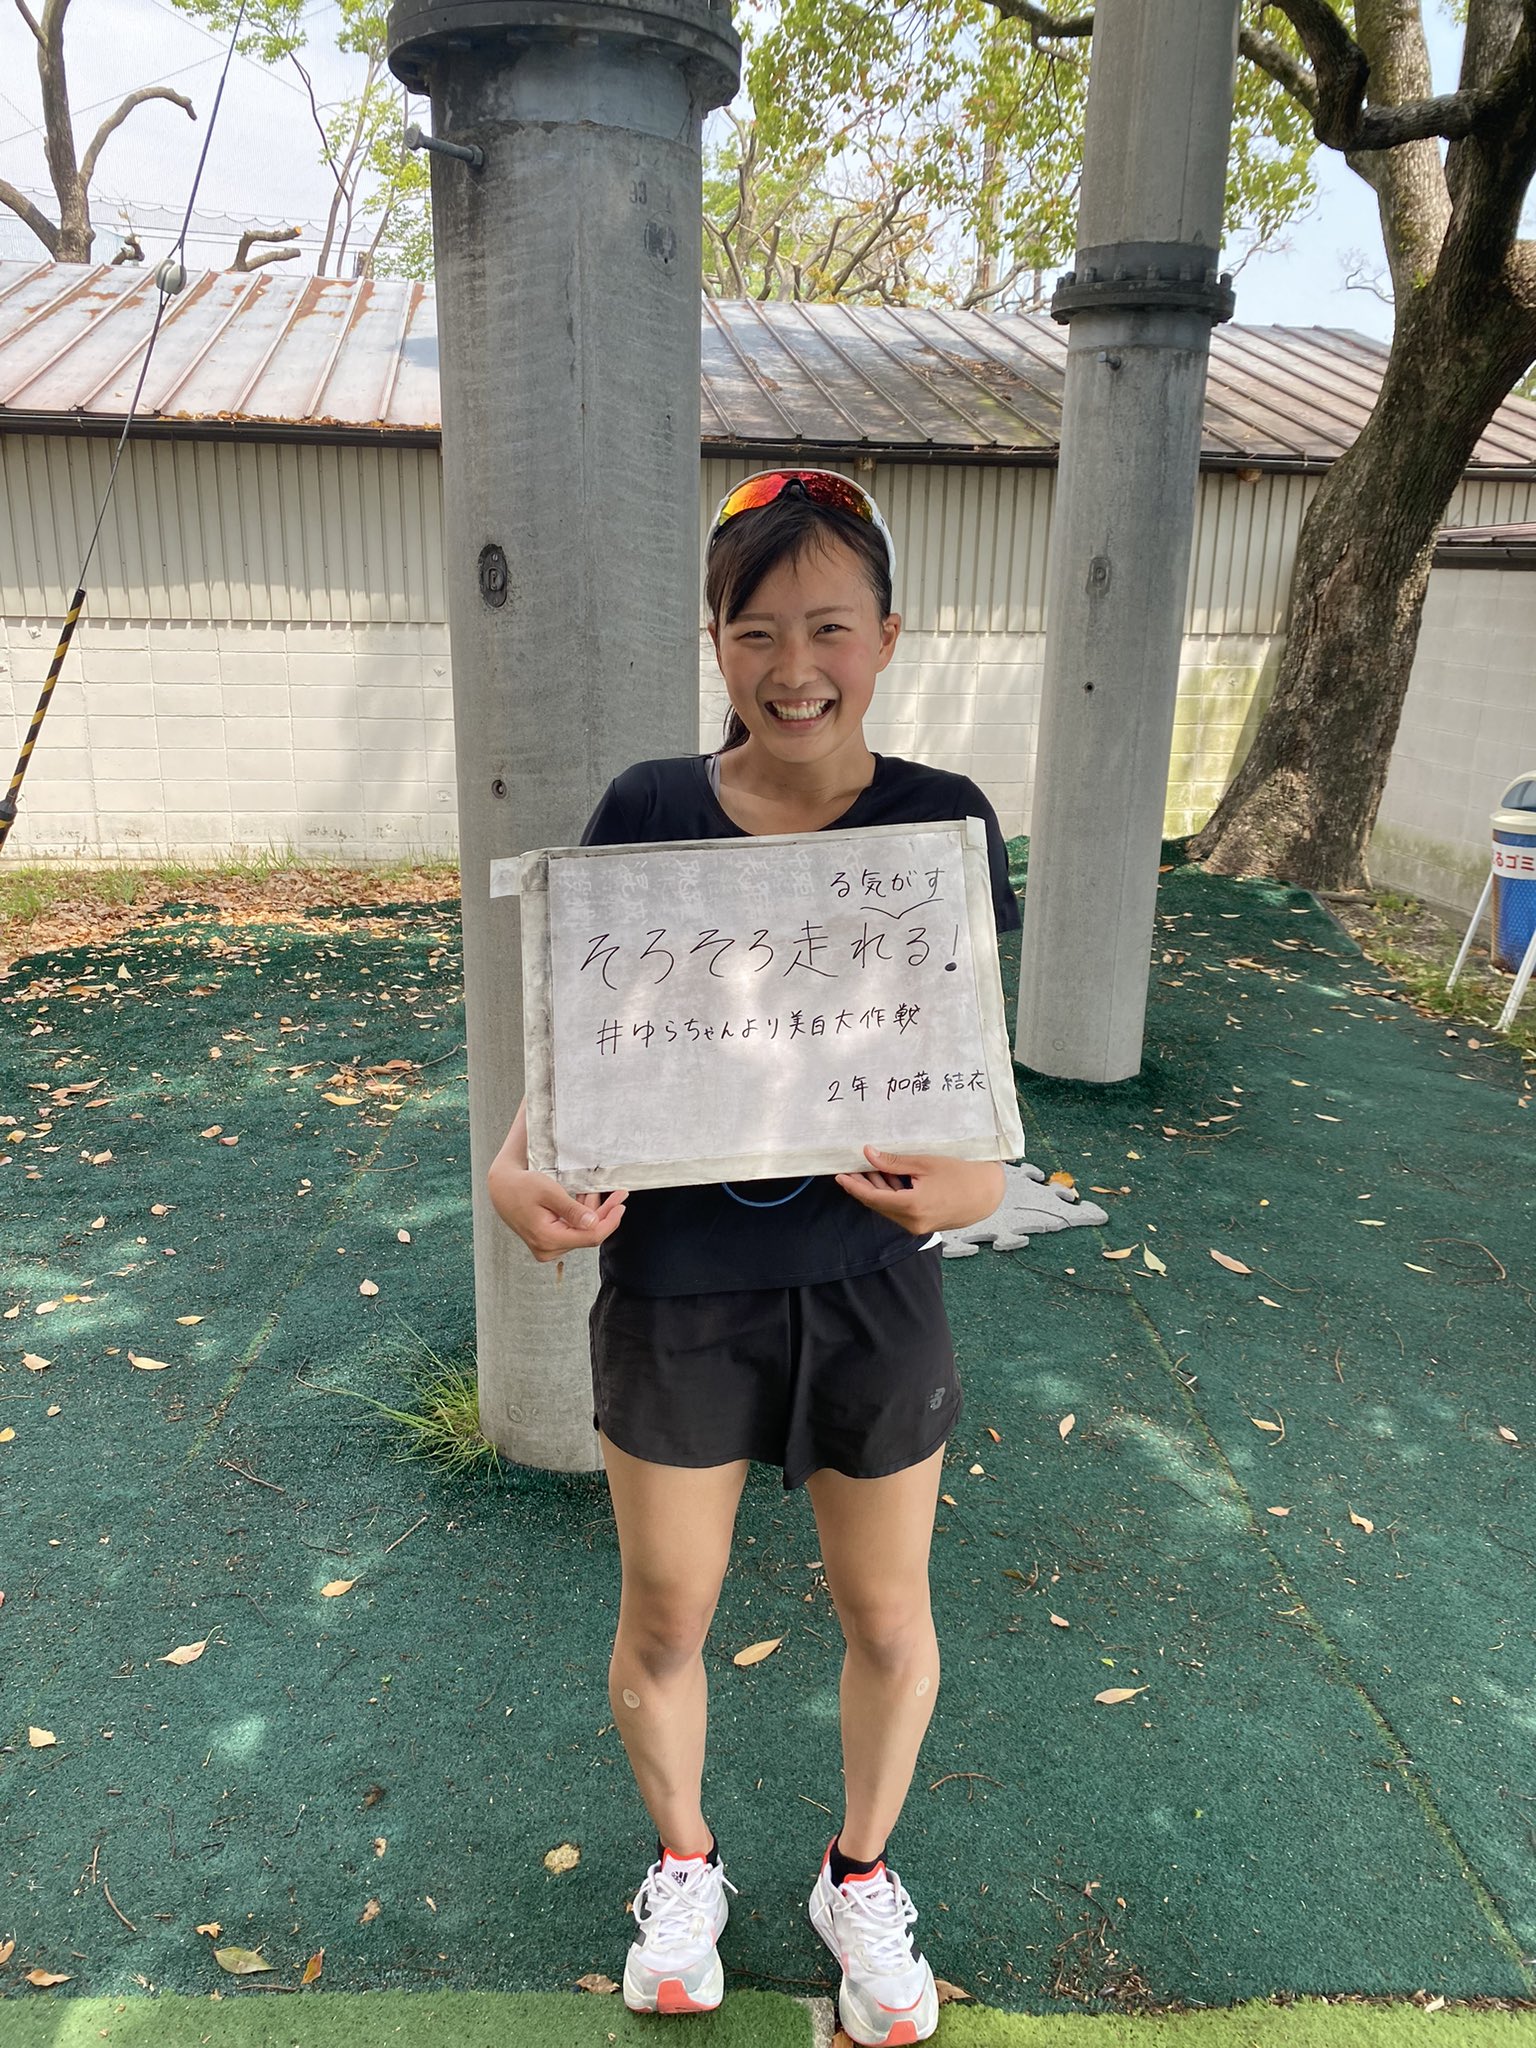 る気がす
そろそろ走れる！
#ゆらちゃんより美白大作戦
2年 加藤 結衣
るゴミ